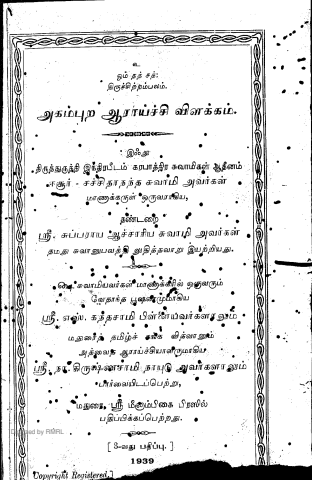 உ
ஓம் தத் சத்:
திருச்சிற்றம்பலம்.
அகம்புற ஆராய்ச்சி விளக்கம்.
இஃது
திருத்துருத்தி இந்திரபீடம் கரபாத்திர சுவாமிகள் ஆதீனம்
ஈசூர் - சச்சிதானந்த சுவாமி அவர்கள்
மாணாக்கருள் ஒருவராகிய,
தண்டறை
ஸ்ரீ. சுப்பராய ஆச்சாரிய சுவாமி அவர்கள்
தமது சுவானுபவத்தி லுதித்தவாறு இயற்றியது.
சுவாமியவர்கள் மாணாக்கரில் ஒருவரும்
வேதாந்த பூஷணமுமாகிய
ஸ்ரீ. எஸ். கந்தசாமி பிள்ளையவர்களாலும்
மதுரைத் தமிழ்ச் சங்க வித்வானும்
அத்வைத ஆராய்ச்சியாளருமாகிய
ஸ்ரீ. நா. கிருஷ்ணசாமி நாயுடு அவர்களாலும்
பார்வையிடப்பெற்று,
மதுரை, ஸ்ரீ மீனாம்பிகை பிரஸில்
பதிப்பிக்கப்பெற்றது.
[ 3-வது பதிப்பு. ]
1939
Copyright Registered.]
by RMRL